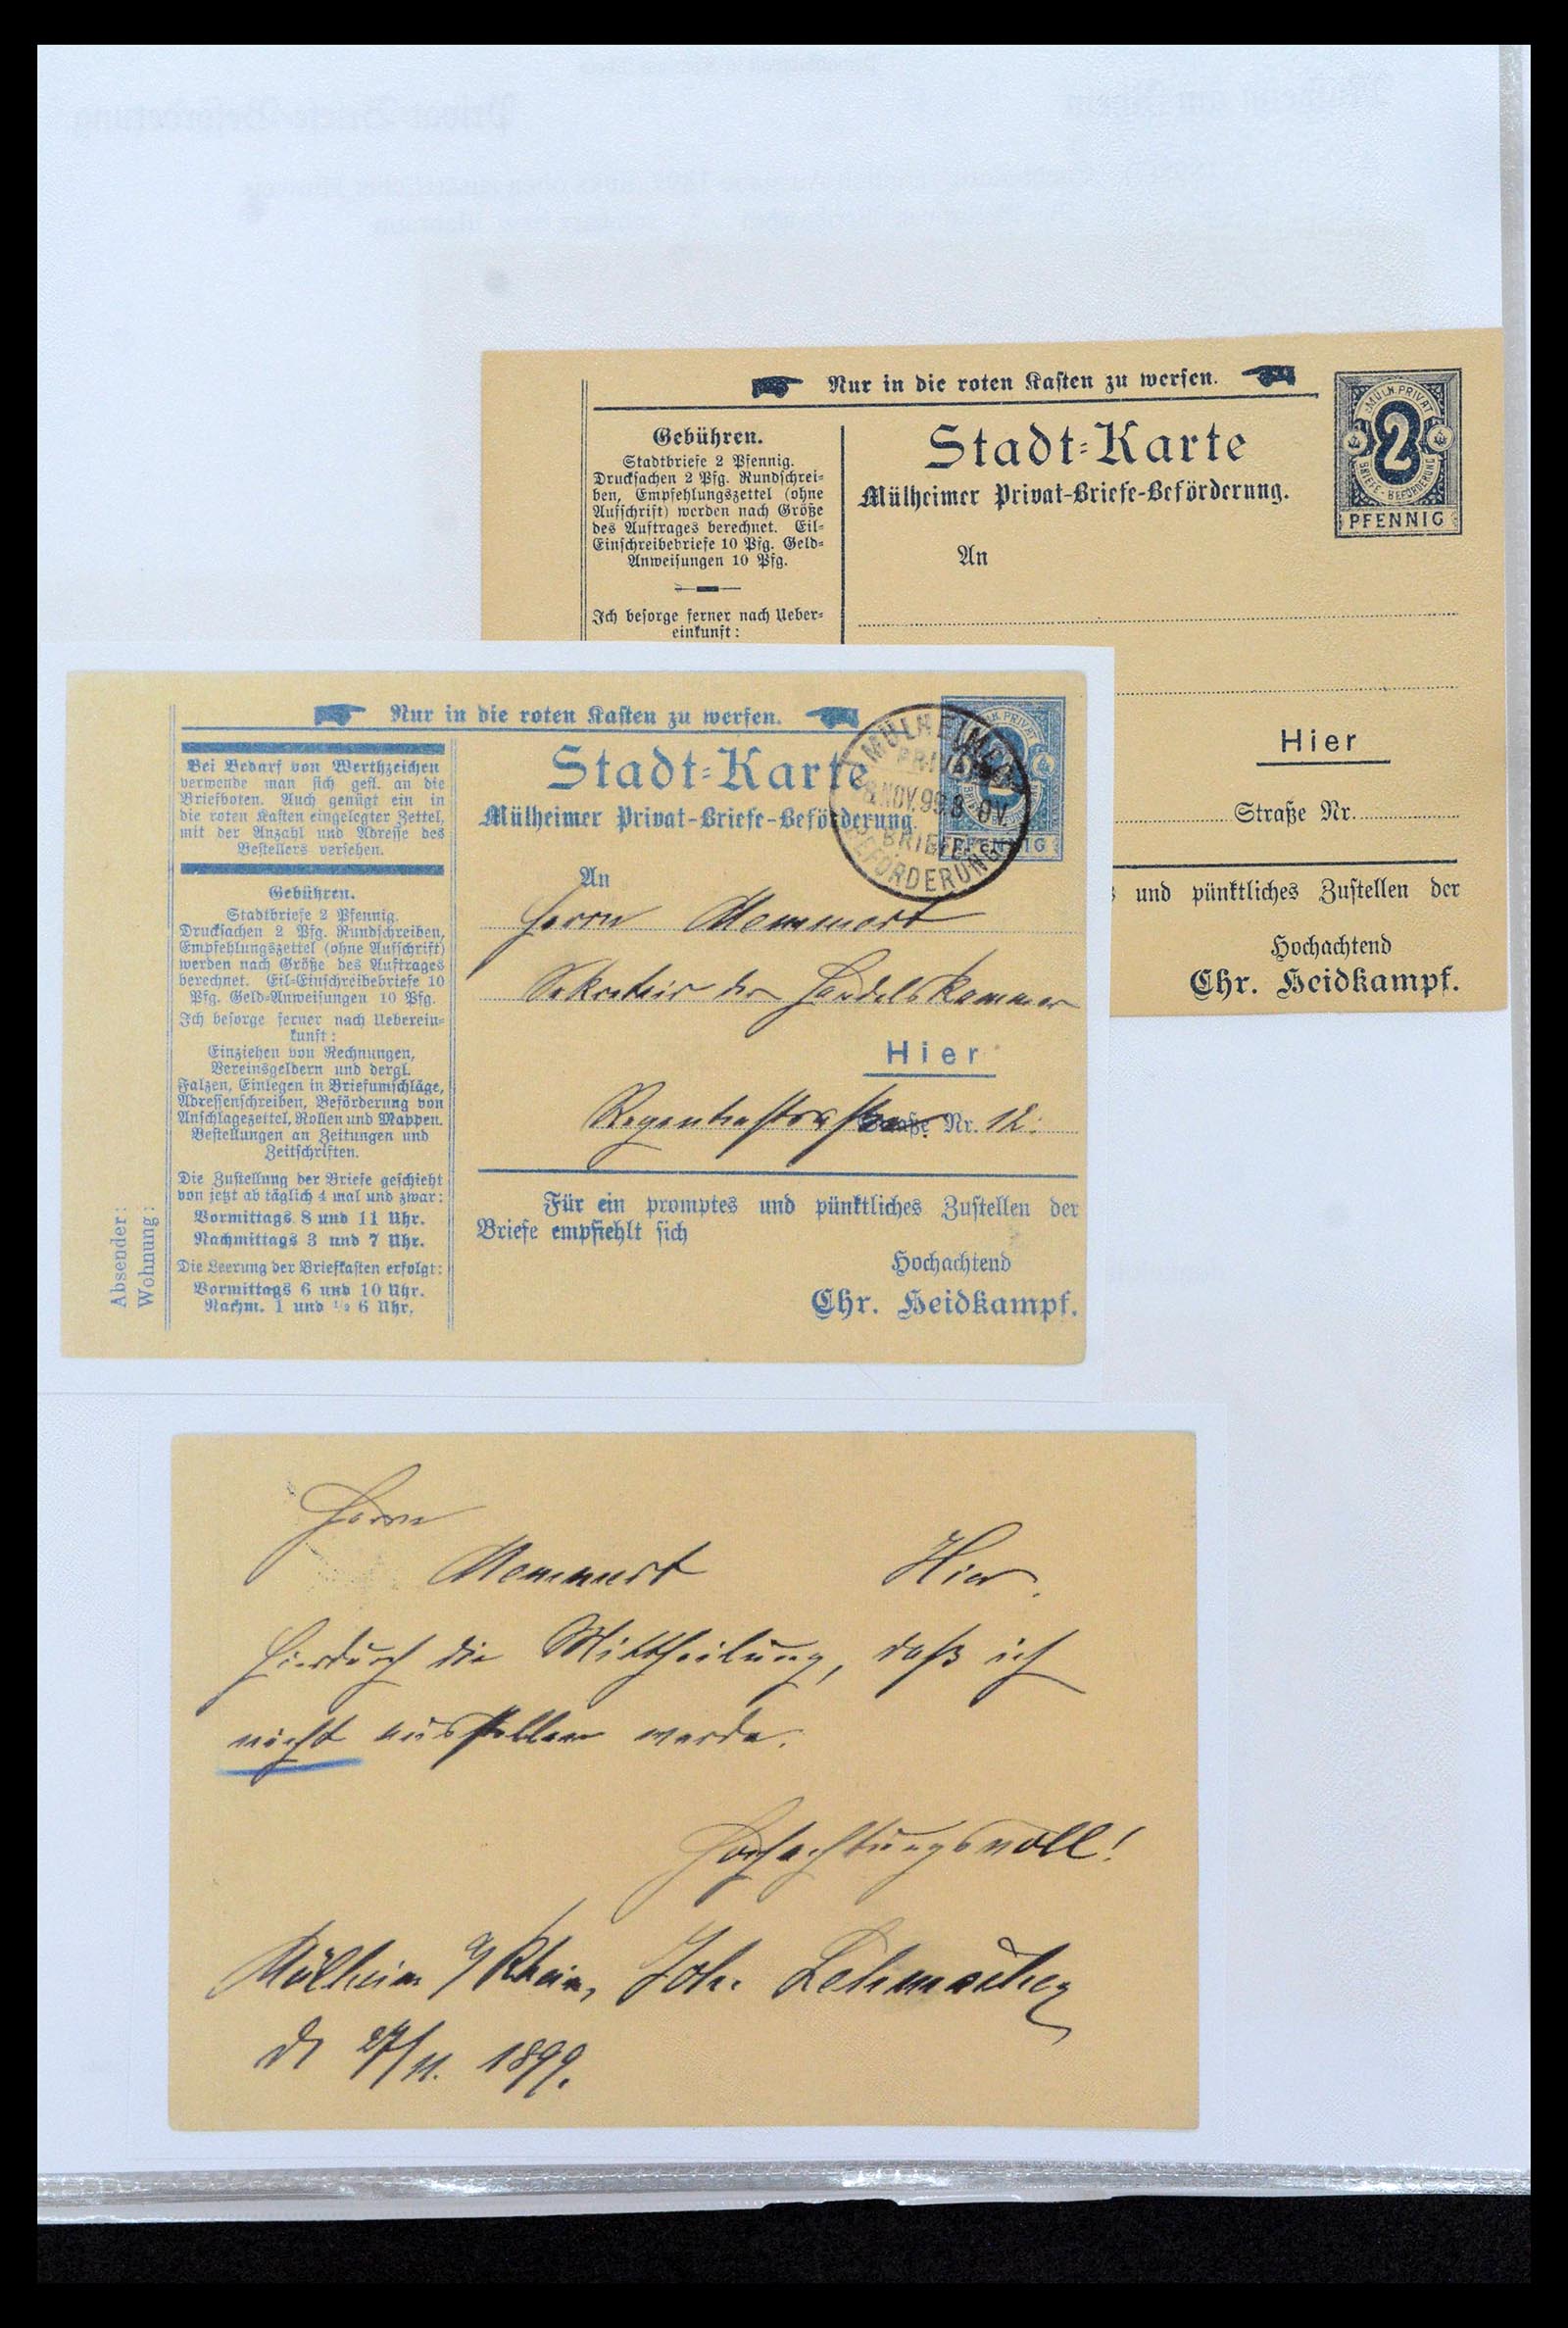 Nur in die roten Kasten zu werfen.
Gebühren.
Stadtbriefe 2 Pfennig.
Drucksachen 2 Pfg. Rundschrei-
ben, Empfehlungszettel (ohne
Aufschrift) werden nach Größe
des Auftrages berechnet. Eil-
Einschreibebriefe 10 Pfg. Geld-
Anweisungen 10 Pfg.
Ich besorge ferner nach Ueber-
einkunft:
Stadt-Karte
Mülheimer Privat-Briefe-Beförderung.
MÜLH. PRIVAT
2
BRIEFE-BEFÖRDERUNG
PFENNIG
An
Hier
Straße Nr.
und pünktliches Zustellen der
Hochachtend
Chr. Heidkampf.
Nur in die roten Kasten zu werfen.
Bei Bedarf von Werthzeichen
verwende man sich gefl. an die
Briefboten. Auch genügt ein in
die roten Kasten eingelegter Zettel,
mit der Anzahl und Adresse des
Bestellers versehen.
Gebühren.
Stadtbriefe 2 Pfennig.
Drucksachen 2 Pfg. Rundschreiben,
Empfehlungszettel (ohne Aufschrift)
werden nach Größe des Auftrages
berechnet. Eil-Einschreibebriefe 10
Pfg. Geld-Anweisungen 10 Pfg.
Ich besorge ferner nach Ueberein-
kunft:
Einziehen von Rechnungen,
Vereinsgeldern und dergl.
Falzen, Einlegen in Briefumschläge,
Adressenschreiben, Beförderung von
Anschlagezettel, Rollen und Mappen.
Bestellungen an Zeitungen und
Zeitschriften.
Die Zustellung der Briefe geschieht
von jetzt ab täglich 4 mal und zwar:
Vormittags 8 und 11 Uhr.
Nachmittags 3 und 7 Uhr.
Die Leerung der Briefkasten erfolgt:
Vormittags 6 und 10 Uhr.
Nachm. 1 und ½ 6 Uhr.
Absender:
Wohnung:
Stadt-Karte
Mülheimer Privat-Briefe-Beförderung.
MÜLHEIMER
PRIVAT
NOV. 99. 8-0V.
BRIEFE
BEFÖRDERUNG
PFENNIG
An
Herrn Memmert
Sekretair der Handelskammer
Hier
Regentenstrasse Straße Nr. 12.
Für ein promptes und pünktliches Zustellen der
Briefe empfiehlt sich
Hochachtend
Chr. Heidkampf.
Herrn
Memmert Hier.
Hierdurch die Mittheilung, daß ich
nicht ausstellen werde.
Hochachtungsvoll!
Mülheim a/Rhein, Joh. Lehmacher
d 27/11. 1899.